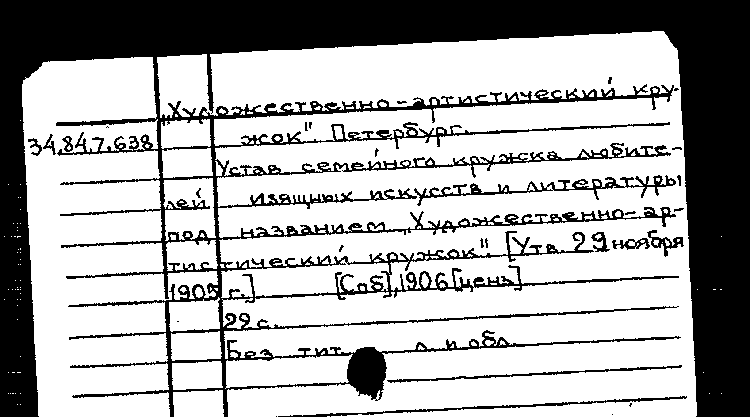 „Художественно-артистический кру-
34.84.7.638 жок". Петербург.
Устав семейного кружка любите-
лей изящных искусств и литературы
под названием „Художественно-ар-
тистический кружок". [Утв. 29 ноября
1905 г.] [Спб], 1906 [ценз]
29 с.
Без тит. л. и обл.